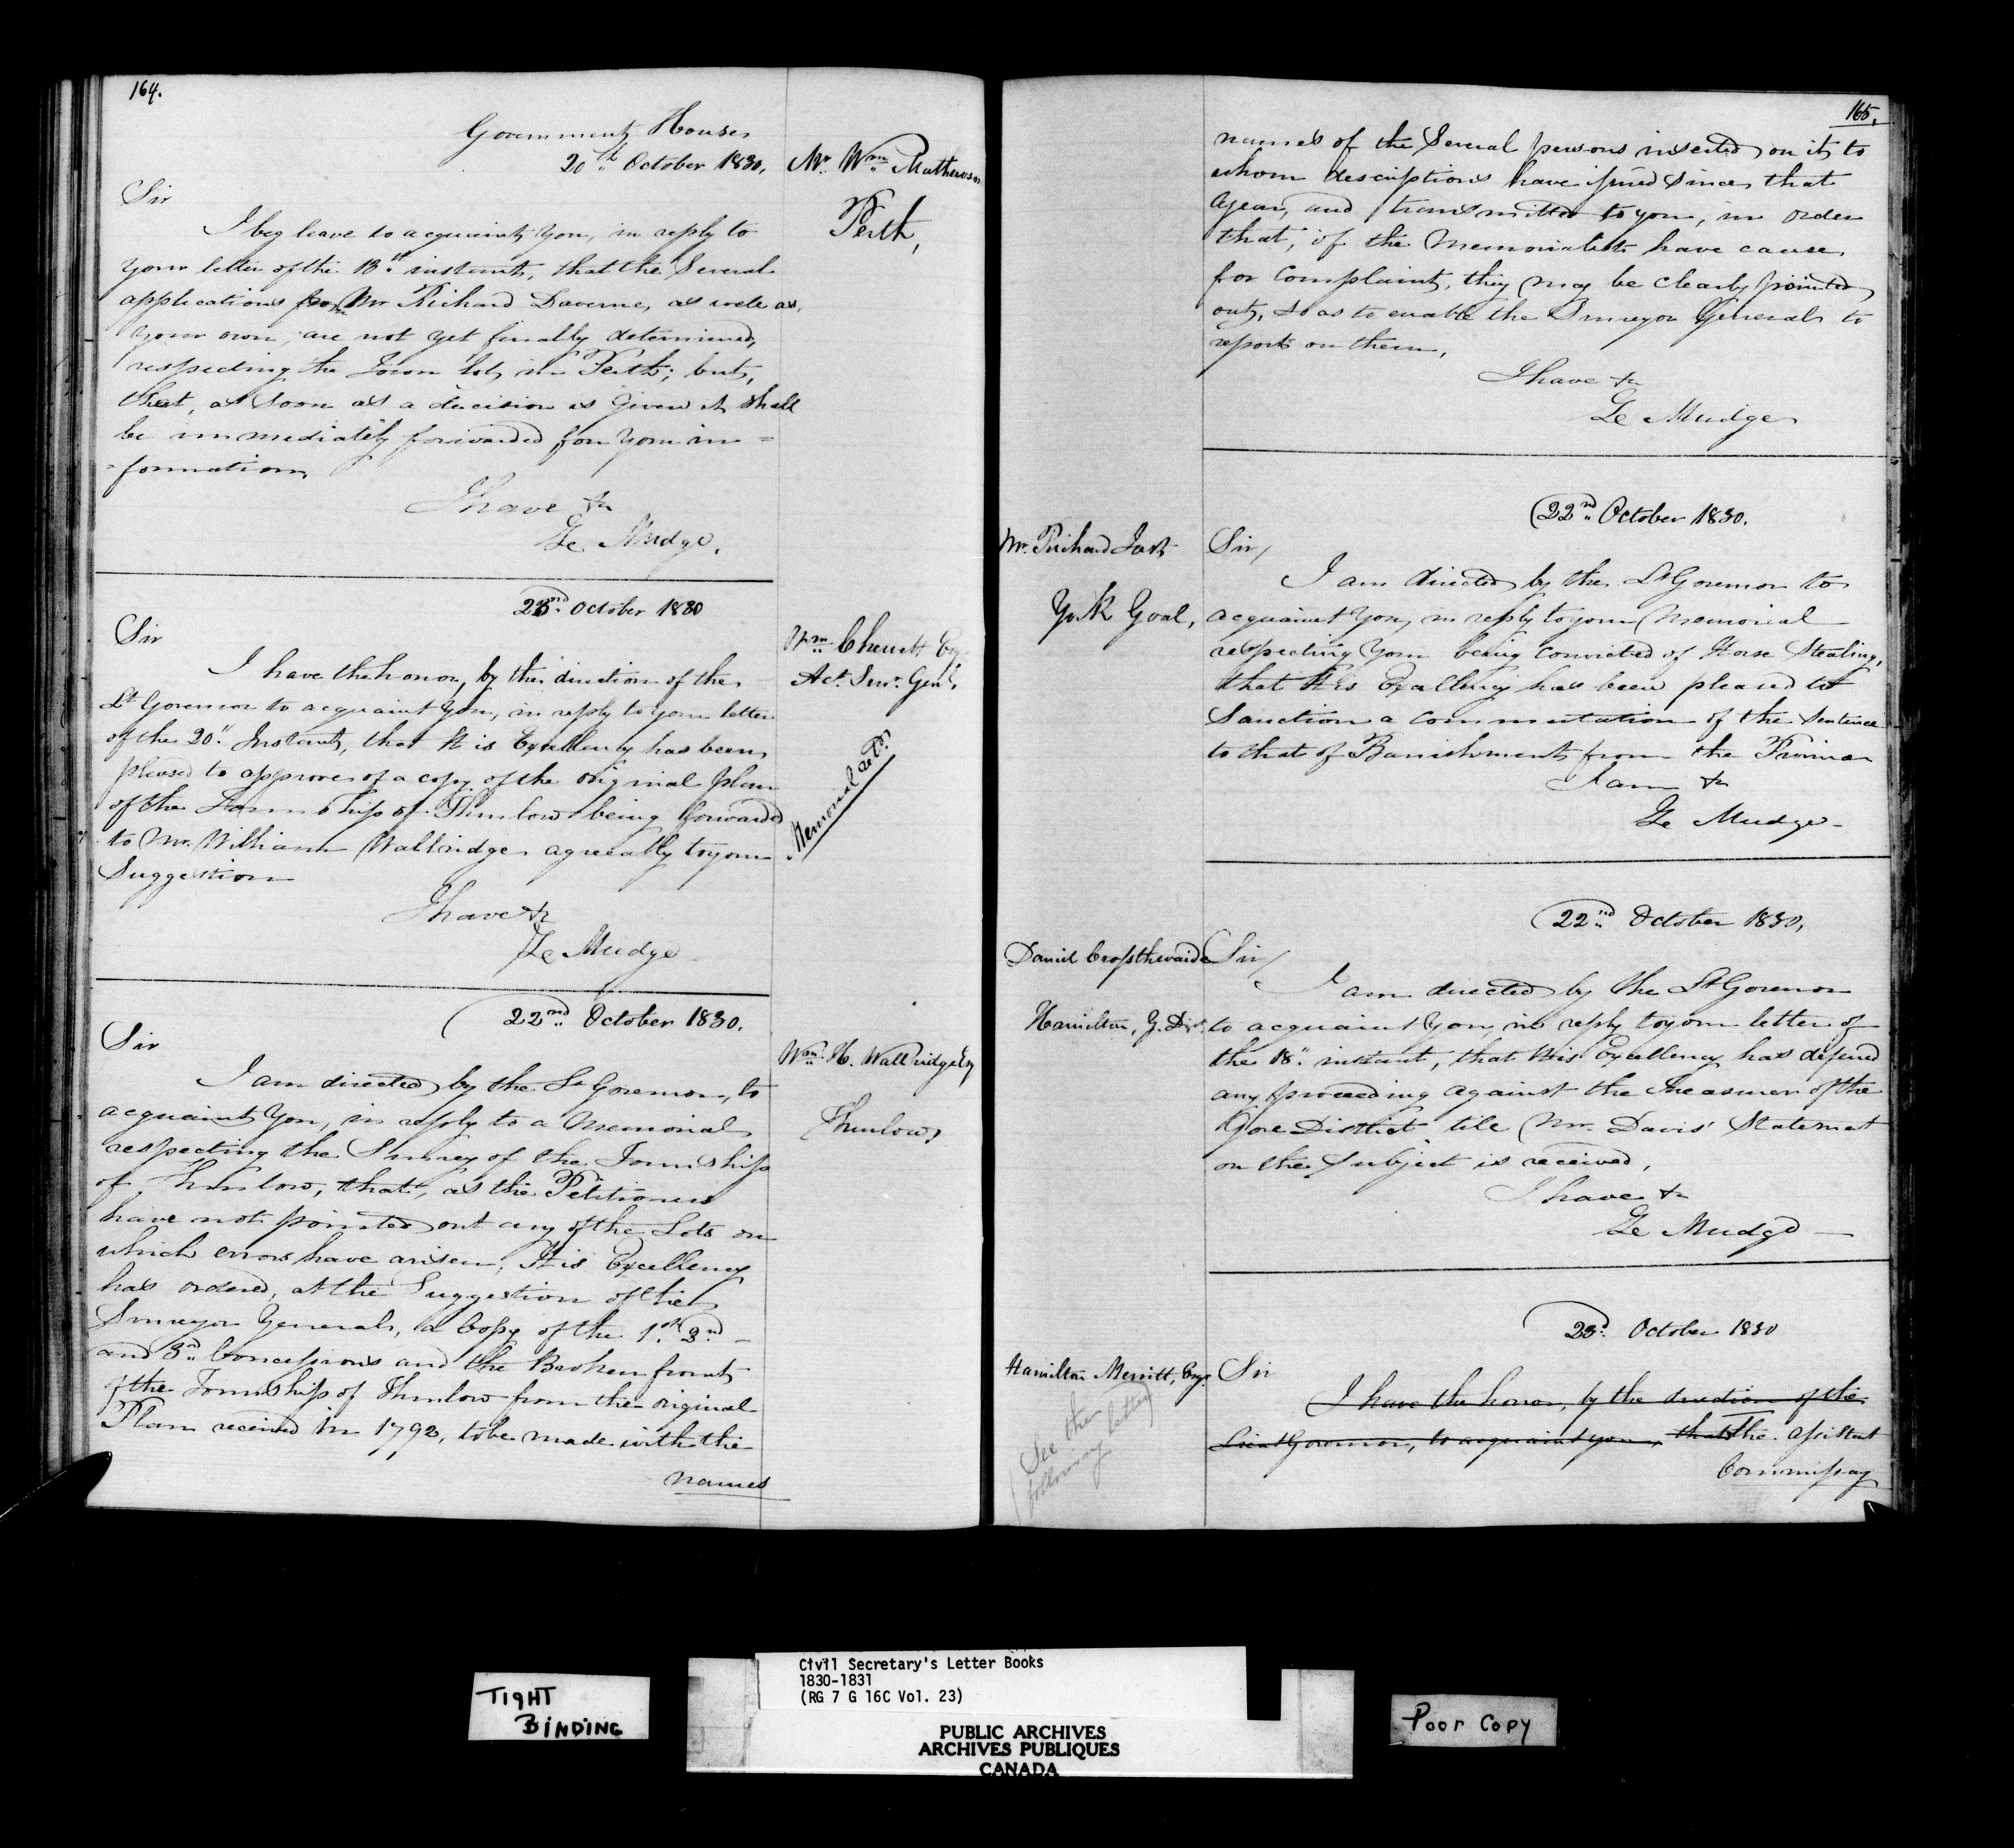 164.
Government House
20th October 1830.
Mr. Wm. Mathewson
Perth,
Sir
I beg leave to acquaint You, in reply to
your letter of the 13th instant, that the Several
applications from Mr Richard Daverne, as well as
your own, are not yet finally determined,
respecting the Town lot, in Perth; but,
that, as soon as a decision is given it shall
be immediately forwarded for Your in=
=formation,
I have &c
Z. Mudge.
October 1830
Wm. Chewett Esq.
Act. Surr. Genl.
Sir
I have the honor, by the direction of the
Lt Governor to acquaint You, in reply to your letter
of the 20th Instant, that His Excellency has been
pleased to approve of a copy of the original plan
of the Township of Thurlow being forwarded
to Mr. William Wallridge agreeably to your
Suggestion
Memorial
I have &c
Z. Mudge
22nd. October 1830.
Wm. H. Wallridge Esq
Thurlow,
Sir
I am directed by the Lt Governor, to
acquaint You, in reply to a Memorial
respecting the Survey of the Township
of Thurlow, that, as the Petitioners
have not pointed out any of the Lots on
which errors have arisen, His Excellency
has ordered, at the Suggestion of the
Surveyor General, a Copy of the 1st. 2nd
and 3rd. Concessions and the Broken front
of the Township of Thurlow from the original
Plan received in 1792, to be made with the
names
165.
names of the Several persons inserted on it, to
whom descriptions have issued since that
Year, and transmitted to you, in order
that, if the Memorialists have cause
for Complaint, they may be clearly pointed
out, so as to enable the Surveyor General to
report on them,
I have &c
Z. Mudge
22nd. October 1830.
Mr. Richard
York Goal,
Sir/
I am directed by the Lt Governor to
acquaint You, in reply to your Memorial
respecting Your being Convicted of Horse Stealing,
that His Excellency has been pleased to
Sanction a commutation of the Sentence
to that of Banishment from the Province
I am &c
Z. Mudge
22nd October 1830,
Daniel Crossthwaite
Hamilton, G. Dist.
Sir/
I am directed by the Lt Governor
to acquaint You, in reply to your letter of
the 18th. instant, that His Excellency has defered
any proceeding against the Treasurer of the
Gore District till Mr. Davis' Statement
on the Subject is received,
I have &c
Z. Mudge
23d. October 1830
Hamilton Merritt, Esqr.
See the
following letter
Sir
I have the honor, by the direction of the
Lieut Governor, to acquaint you, that the Assistant
Commissary
TIGHT
BINDING
Civil Secretary's Letter Books
1830-1831
(RG 7 G 16C Vol. 23)
PUBLIC ARCHIVES
ARCHIVES PUBLIQUES
CANADA
Poor Copy